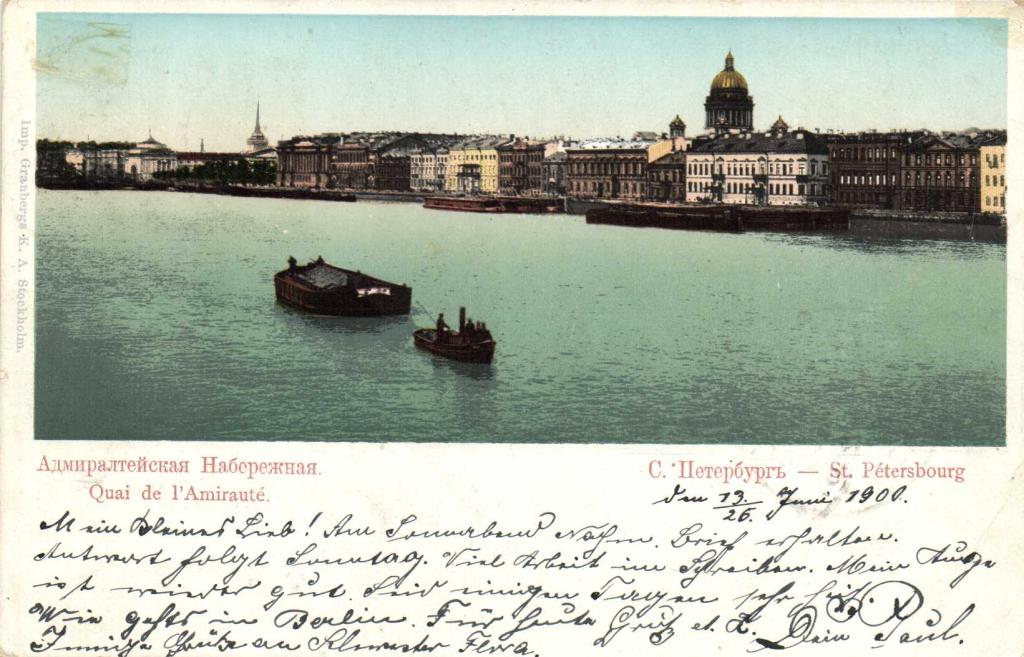 Imp. Granbergs K. A. Stockholm.
Адмиралтейская Набережная.
Quai de l'Amirauté.
С. Петербургъ — St. Pétersbourg
den 13/26. Juni 1900.
Mein kleines Lieb! Am Sonnabend Nachm. Brief erhalten.
Antwort folgt Sonntag. Viel Arbeit im Schreiben. Mein Auge
ist wieder gut. Seid einigen Tagen sehr heiß.
Wie gehts in Berlin. Für heute Gruß et. K. Dein Paul.
Innige Grüße an Schwester Flora.